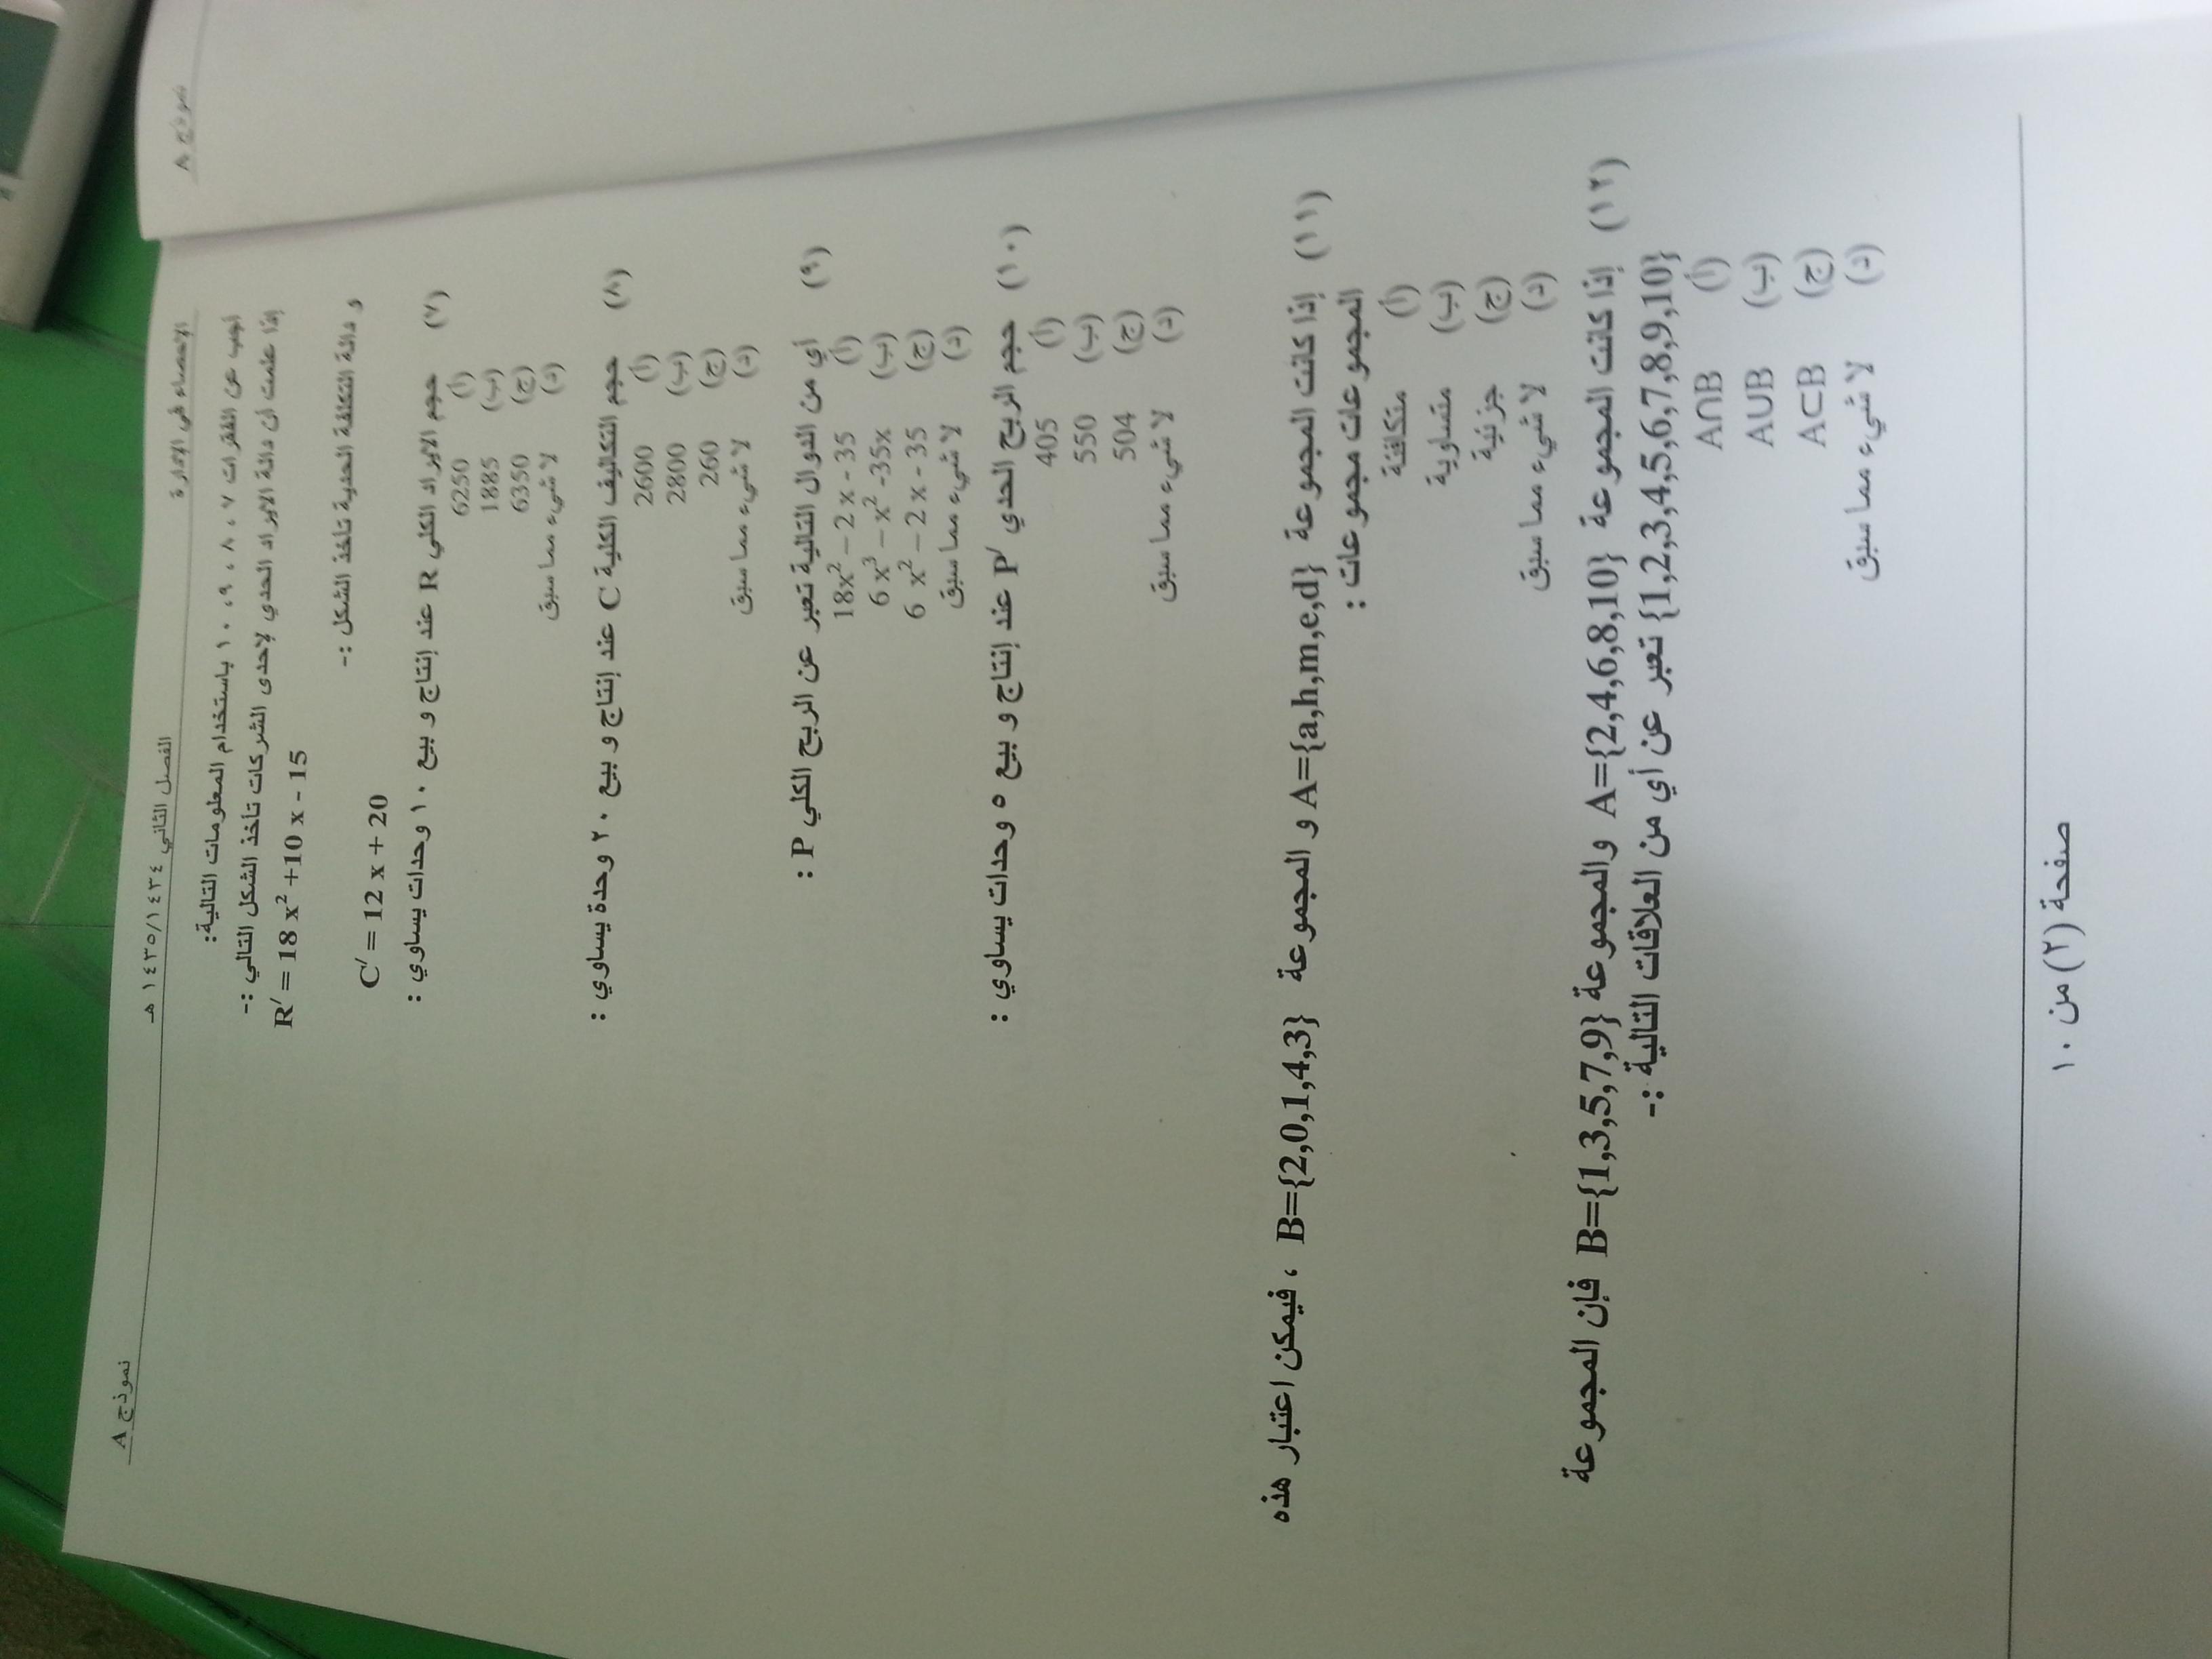 نموذج A
الفصل الثاني ١٤٣٥/١٤٣٤ هـ
الإحصاء في الإدارة
أجب عن الفقرات ٧ ، ٨ ، ٩ ، ١٠ باستخدام المعلومات التالية:
إذا علمت أن دالة الايراد الحدي لإحدى الشركات تأخذ الشكل التالي :-
R′ = 18 x² +10 x - 15
و دالة التكلفة الحدية تأخذ الشكل :-
C′ = 12 x + 20
(٧) حجم الايراد الكلي R عند إنتاج و بيع ١٠ وحدات يساوي :
(أ) 6250
(ب) 1885
(ج) 6350
(د) لا شيء مما سبق
(٨) حجم التكاليف الكلية C عند إنتاج و بيع ٢٠ وحدة يساوي :
(أ) 2600
(ب) 2800
(ج) 260
(د) لا شيء مما سبق
(٩) أي من الدوال التالية تعبر عن الربح الكلي P :
(أ) 18x² – 2 x - 35
(ب) 6 x³ – x² -35x
(ج) 6 x² – 2 x - 35
(د) لا شيء مما سبق
(١٠) حجم الربح الحدي P′ عند إنتاج و بيع ٥ وحدات يساوي :
(أ) 405
(ب) 550
(ج) 504
(د) لا شيء مما سبق
(١١) إذا كانت المجموعة A={a,h,m,e,d} و المجموعة B={2,0,1,4,3} ، فيمكن اعتبار هذه
المجموعات مجموعات :
(أ) متكافئة
(ب) متساوية
(ج) جزئية
(د) لا شيء مما سبق
(١٢) إذا كانت المجموعة A={2,4,6,8,10} والمجموعة B={1,3,5,7,9} فإن المجموعة
{1,2,3,4,5,6,7,8,9,10} تعبر عن أي من العلاقات التالية :-
(أ) A∩B
(ب) A∪B
(ج) A⊂B
(د) لا شيء مما سبق
صفحة (٢) من ١٠
نموذج A